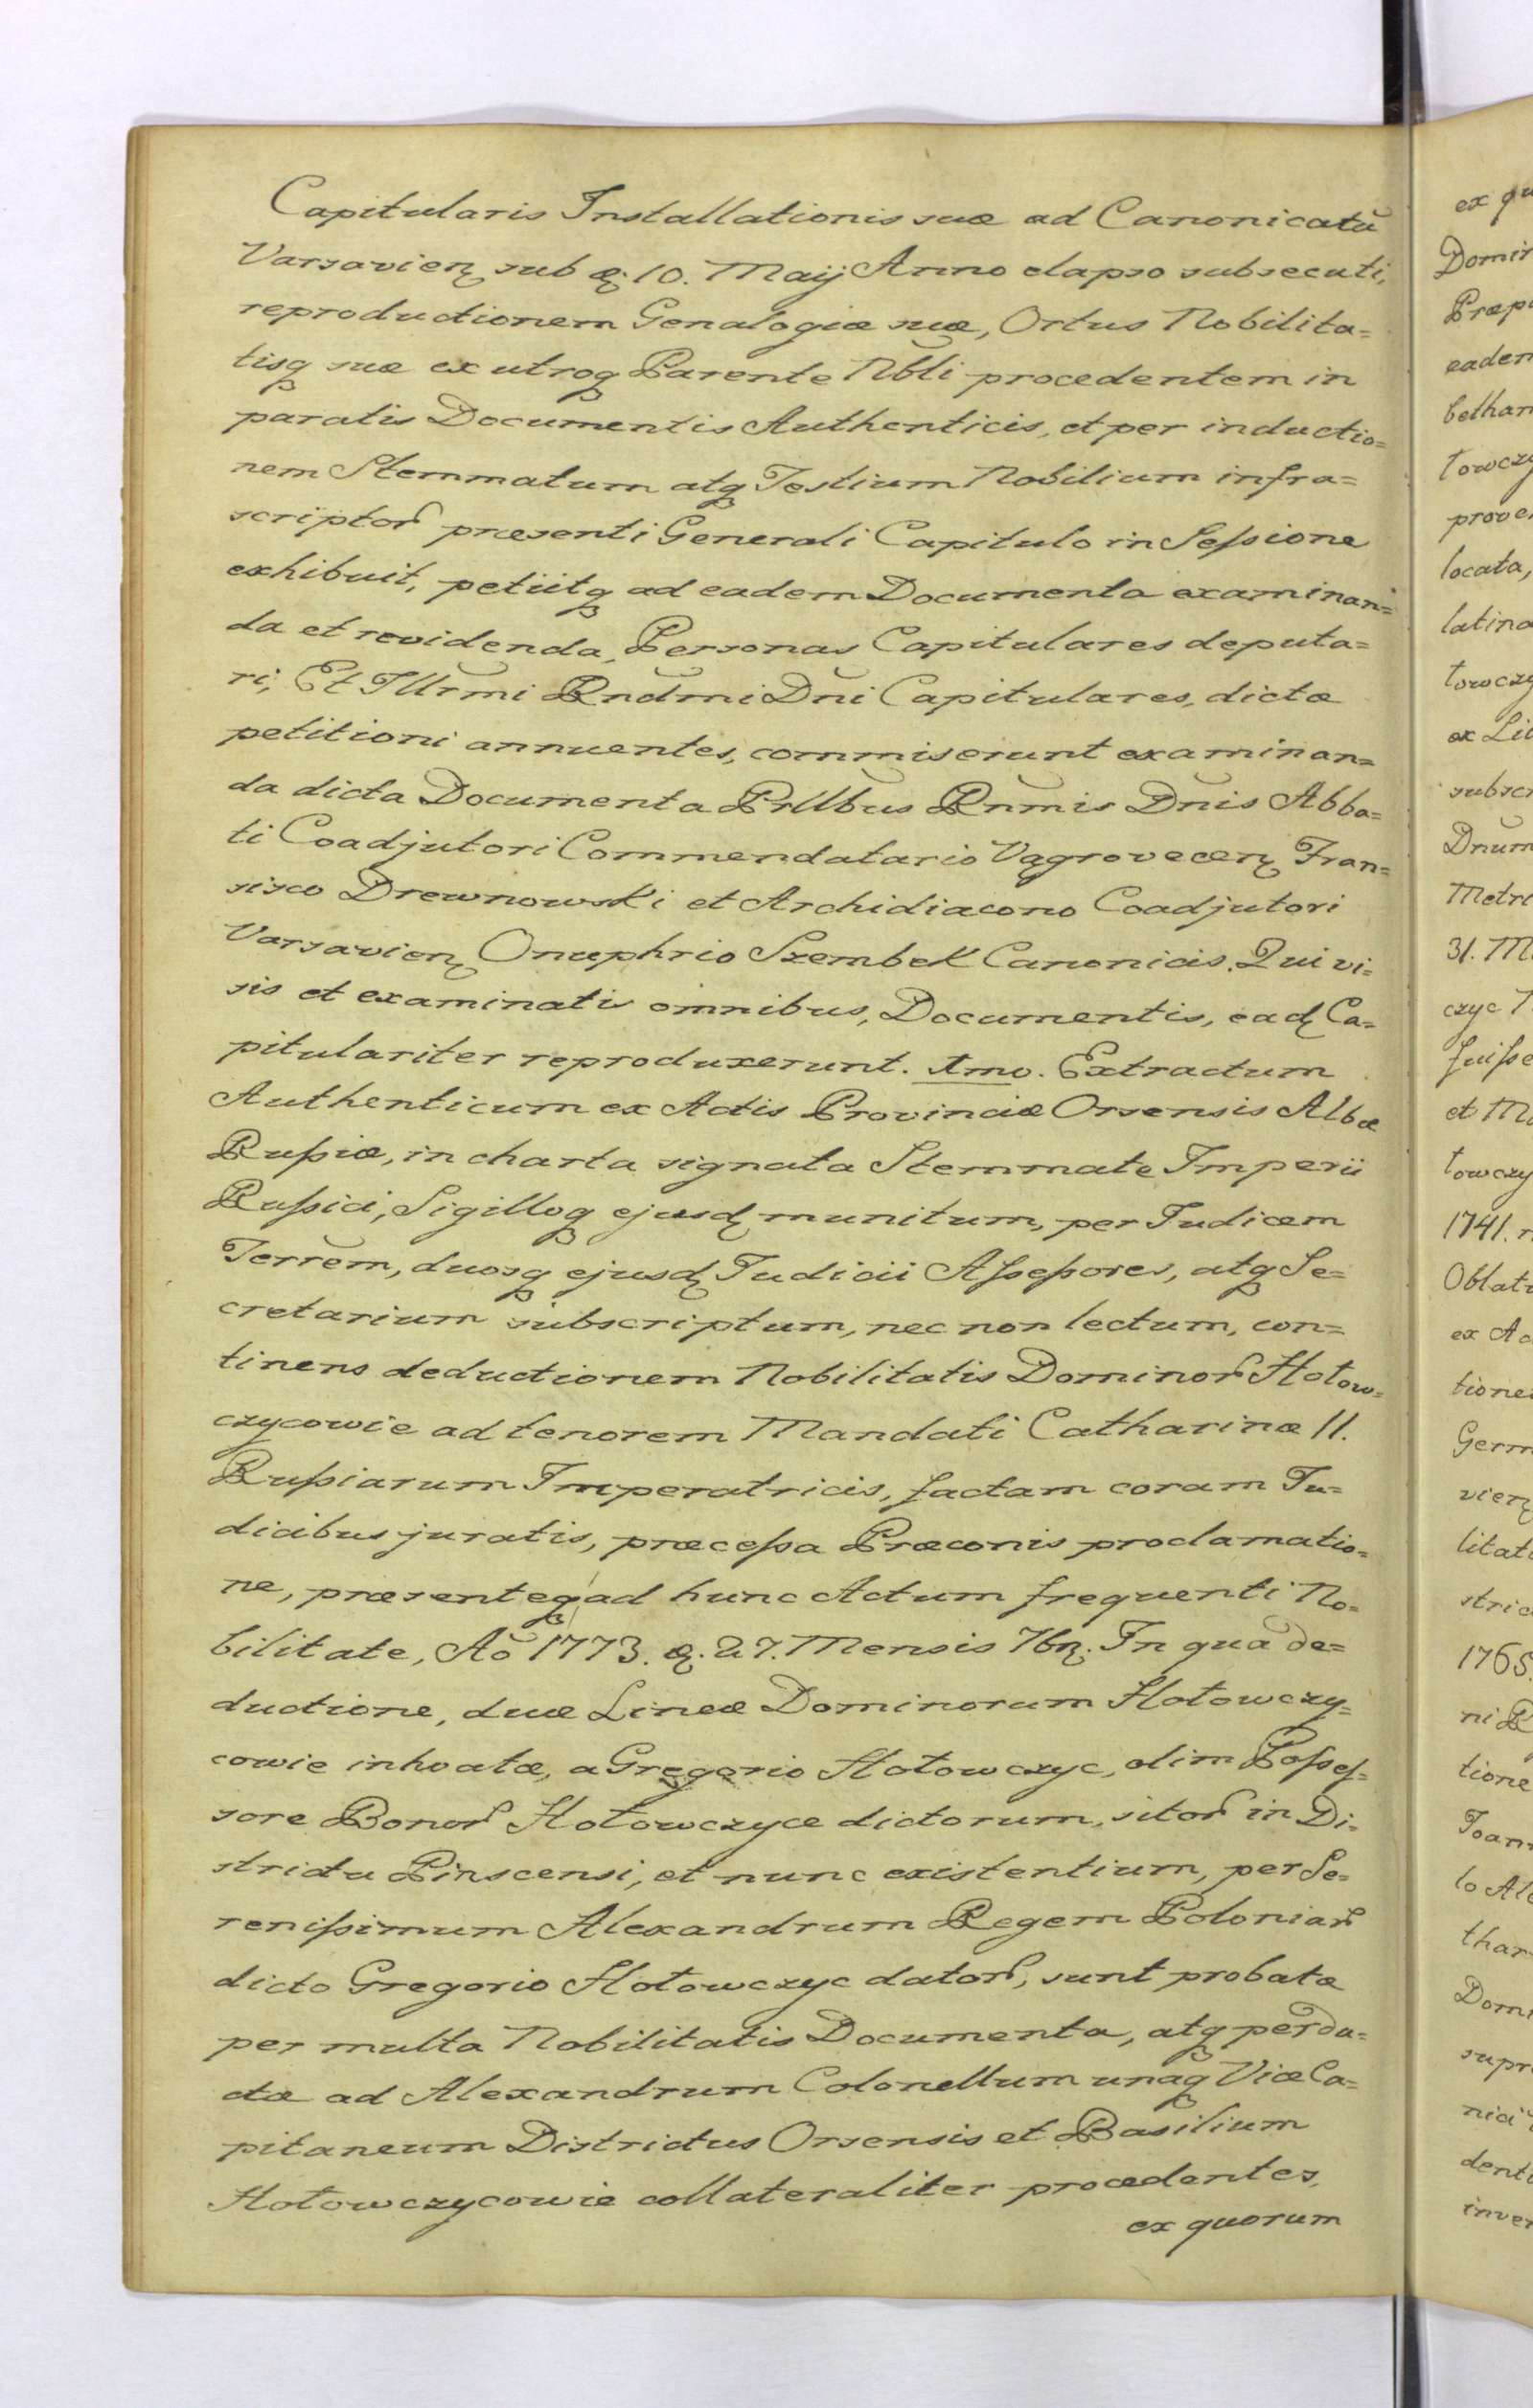 Capitularis Installationis suæ ad Canonicatū
Varsavien̄ sub d. 10. Maij Anno elapso subsecuti,
reproductionem Genalogiæ suæ, Ortus Nobilita=
tisq suæ ex utroq Parente Nb̃li procedentem in
paratis Documentis Authenticis, et per inductio=
nem Stemmatum atq Testium Nobilium infra=
scriptor̄ præsenti Generali Capitulo in Seſsione
exhibuit, petiitq ad eadem Documenta examinan=
da et revidenda, Personas Capitulares deputa=
ri; Et Illr̃mi Rnd̃mi Dn̄i Capitulares, dictæ
petitioni annuentes, commiserunt examinan=
da dicta Documenta Prllb̃us Rn̄mis Dn̄is Abba=
ti Coadjutori Commendatario Vągrovecen̄ Fran=
sisco Drewnowski et Archidiacono Coadjutori
Varsavien̄ Onuphrio Szembek Canonicis. Qui vi=
sis et examinatis omnibus, Documentis, ead Ca=
pitulariter reproduxerunt. 1mo. Extractum
Authenticum ex Actis Provinciæ Orsensis Albæ
Ruſsiæ, in charta signata Stemmate Imperii
Ruſsici, Sigilloq ejusd munitum, per Judicem
Terrēm, duosq ejusd Judicii Aſseſsores, atq Se=
cretarium subscriptum, nec non lectum, con=
tinens deductionem Nobilitatis Dominor̄ Hołow=
czycowie ad tenorem Mandati Catharinæ II.
Ruſsiarum Imperatricis, factam coram Ju=
dicibus juratis, præceſsa Præconis proclamatio=
ne, præsenteq ad hunc Actum frequenti No=
bilitate, Aō 1773. d. 27. Mensis 7br̄. In qua de=
ductione, duæ Lineæ Dominorum Hołowczy=
cowie inhoatæ, a Gregorio Hołowczyc, olim Poſseſ=
sore Bonor̄ Hołowczyce dictorum, sitor̄ in Di=
strictu Pinscensi, et nunc existentium, per Se=
reniſsimum Alexandrum Regem Poloniar̄
dicto Gregorio Hołowczyc dator̄, sunt probatæ
per multa Nobilitatis Documenta, atq perdu=
ctæ ad Alexandrum Colonellum unaq Vice Ca=
pitaneum Districtus Orsensis et Basilium
Hołowczycowie collateraliter procedentes,
ex quorum
ex qu
Domin
Præp
eadem
bethan
łowczy
prove
locata,
latina
łowczy
ex Li
subscr
Dnum
Metri
31. M
czyc
fuiſse
et M
łowczy
1741.
Oblat
ex Ac
tione
Germ
vien̄
litat
stric
1765.
ni
tione
Joan
lo Al
thar
Domi
supr
nici
dent
inven